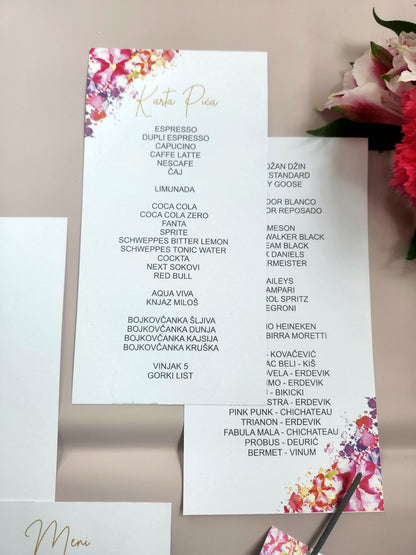 Karta Pića
ESPRESSO
DUPLI ESPRESSO
CAPUCINO
CAFFE LATTE
NESCAFE
ČAJ
LIMUNADA
COCA COLA
COCA COLA ZERO
FANTA
SPRITE
SCHWEPPES BITTER LEMON
SCHWEPPES TONIC WATER
COCKTA
NEXT SOKOVI
RED BULL
AQUA VIVA
KNJAZ MILOŠ
BOJKOVČANKA ŠLJIVA
BOJKOVČANKA DUNJA
BOJKOVČANKA KAJSIJA
BOJKOVČANKA KRUŠKA
VINJAK 5
GORKI LIST
DŽIN
STANDARD
GOOSE
BLANCO
REPOSADO
WALKER BLACK
BLACK
DANIELS
SPRITZ
HEINEKEN
BIRRA MORETTI
- KOVAČEVIĆ
BELI - KIŠ
- ERDEVIK
- ERDEVIK
- BIKICKI
- ERDEVIK
PINK PUNK - CHICHATEAU
TRIANON - ERDEVIK
FABULA MALA - CHICHATEAU
PROBUS - DEURIĆ
BERMET - VINUM
Meni